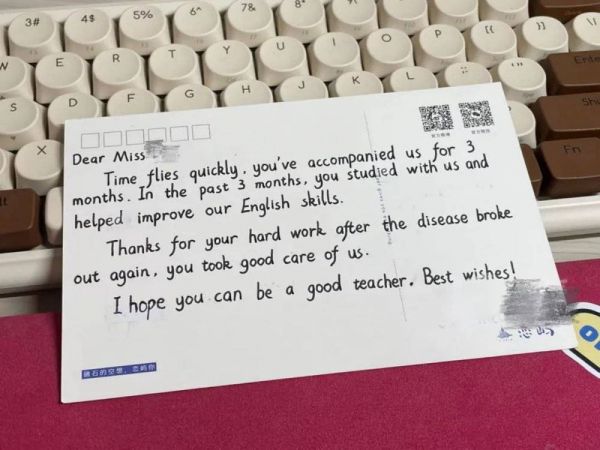 3# 4$ 5% 6^ 7& 8* 9( 0)
W E R T Y U I O P [{ ]}
S D F G H J K L Enter
X Shift
Alt Fn
官方微博 官方微信
Dear Miss
Time flies quickly, you've accompanied us for 3
months. In the past 3 months, you studied with us and
helped improve our English skills.
Thanks for your hard work after the disease broke
out again, you took good care of us.
I hope you can be a good teacher. Best wishes!
恋屿